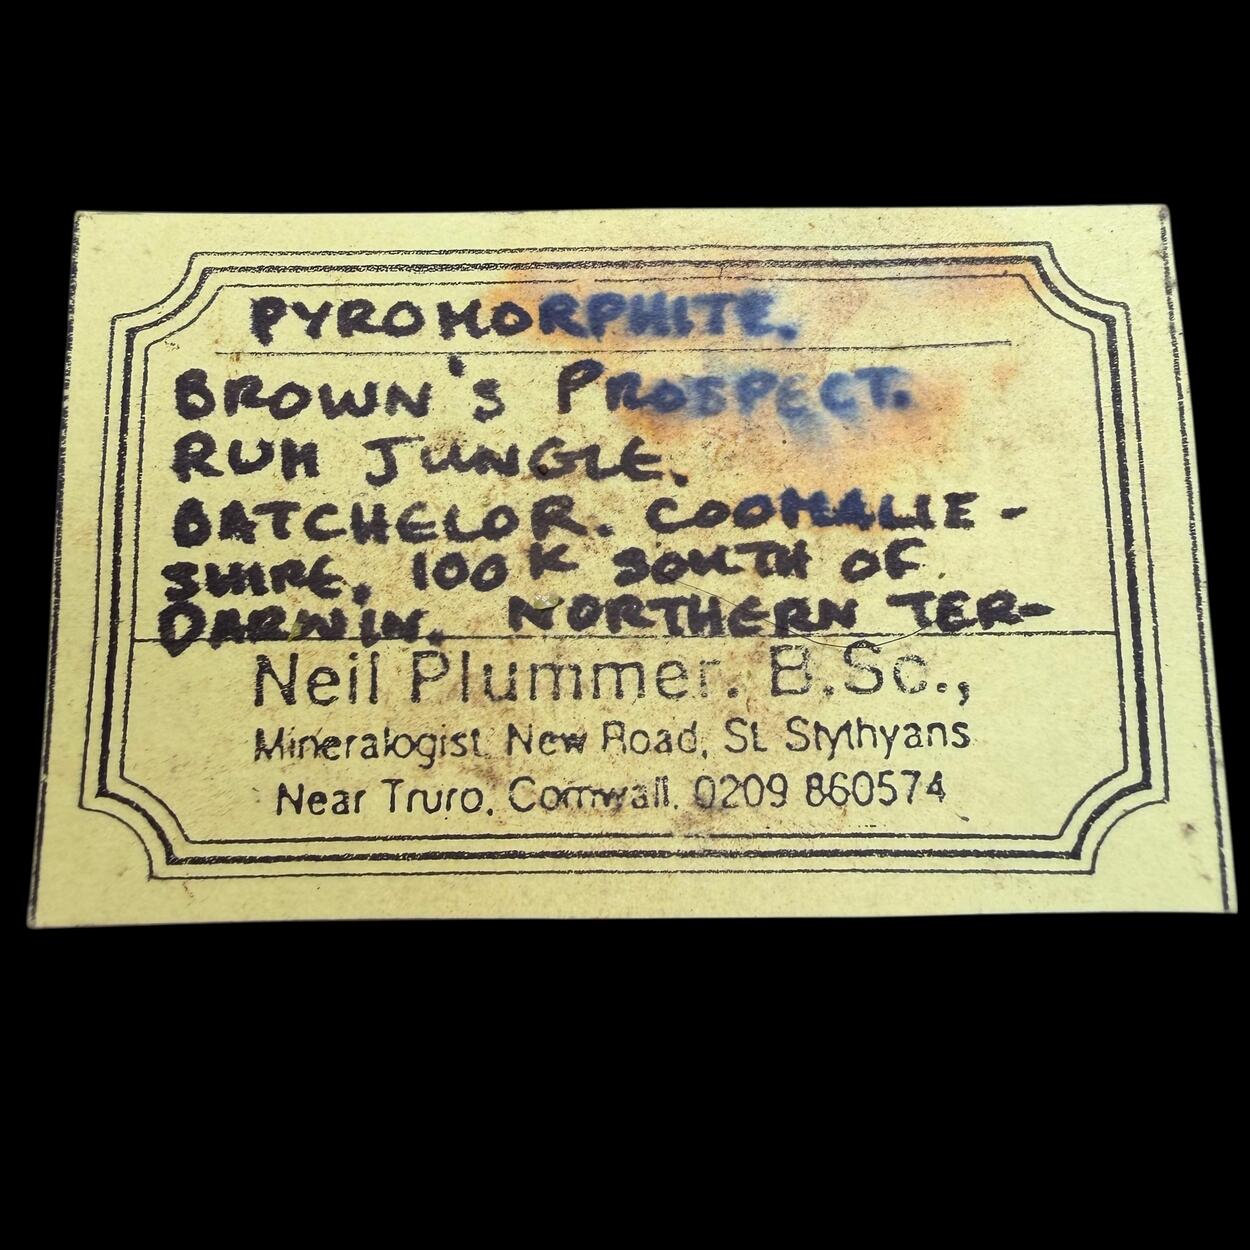 PYROMORPHITE.
BROWN'S PROSPECT.
RUM JUNGLE.
BATCHELOR. COOMALIE-
SHIRE, 100K SOUTH OF
DARWIN. NORTHERN TER-
Neil Plummer. B.Sc.,
Mineralogist, New Road, St. Stythyans
Near Truro, Cornwall. 0209 860574